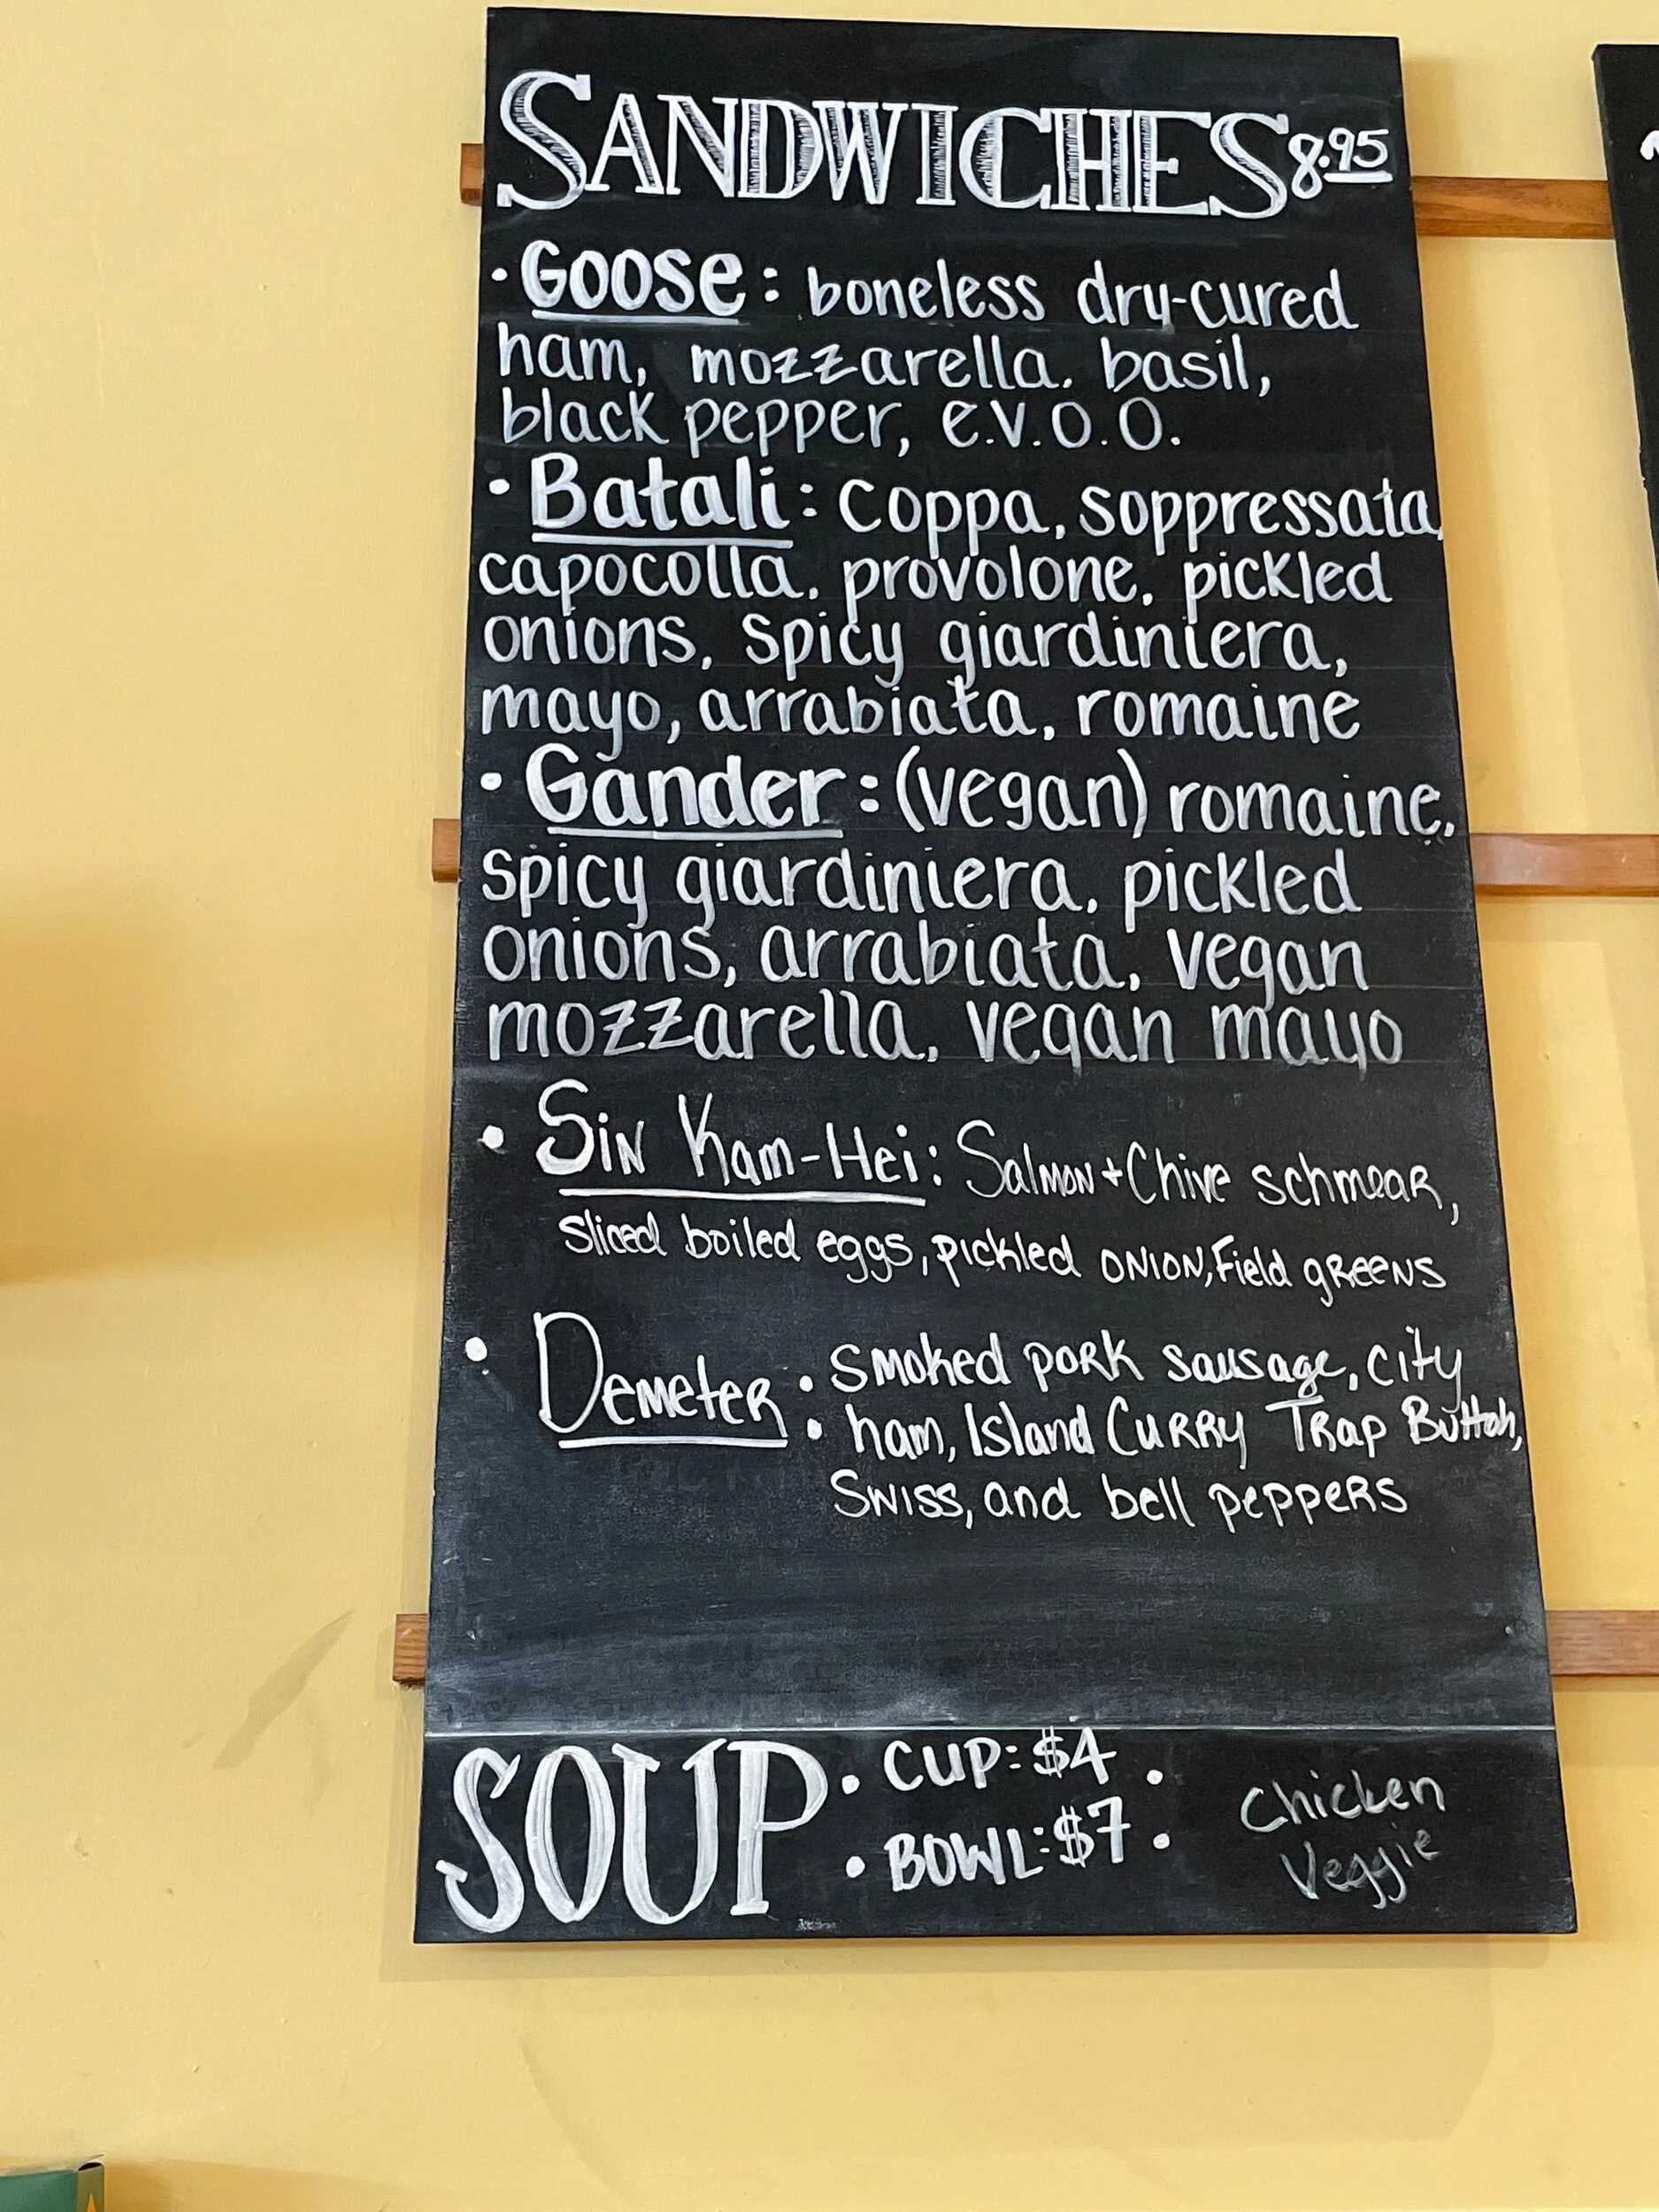 SANDWICHES 8.95
• Goose: boneless dry-cured
ham, mozzarella, basil,
black pepper, e.v.o.o.
• Batali: coppa, soppressata,
capocolla, provolone, pickled
onions, spicy giardiniera,
mayo, arrabiata, romaine
• Gander: (vegan) romaine,
spicy giardiniera, pickled
onions, arrabiata, vegan
mozzarella, vegan mayo
• Sin Kam-Hei: Salmon + Chive schmear,
sliced boiled eggs, pickled onion, field greens
• Demeter: smoked pork sausage, city
ham, Island Curry Trap Button,
Swiss, and bell peppers
SOUP • CUP: $4 •
• BOWL: $7 •
Chicken
Veggie